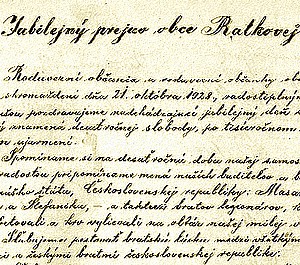 Jubilejný prejav obce Ratkovej
Roduverní občania a roduverné občianky ob
shromaždení dňa 21. októbra 1928, radostiplným
pozdravujeme nadchádzajúci jubilejný deň
znamená desaťročnej slobody, po tisícročnom
ujarmení.
Spomíname si na desaťročnú dobu našej samos
radosťou pripomíname mená našich buditeľov a b
štátu, Československej republiky: Masa
a Štefánika, – a taktiež bratov legionárov,
a krv vylievali na oltár našej milej
Sľubujeme pestovať bratskú lásku medzi
a českými bratmi československej republike.